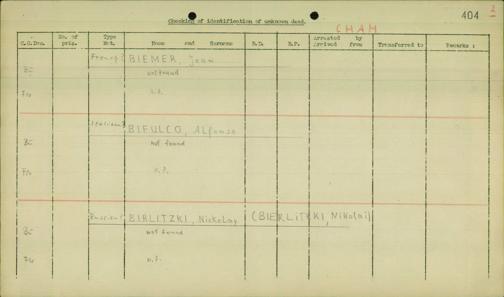 404 2
Checking of identification of unknown dead.
CHAM
C.C.Doc.
No. of pris.
Type Nat.
Name and Surname
B.D.
B.P.
Arrested by
Arrived from
Transferred to
Remarks :
French? BIEMER, Jean
Bü not found
Italian? BIFULCO, Alfonso
Bü not found
Russian? BIRLITZKI, Nickolay (BIERLiTZKI, Nikolai)
Bü not found